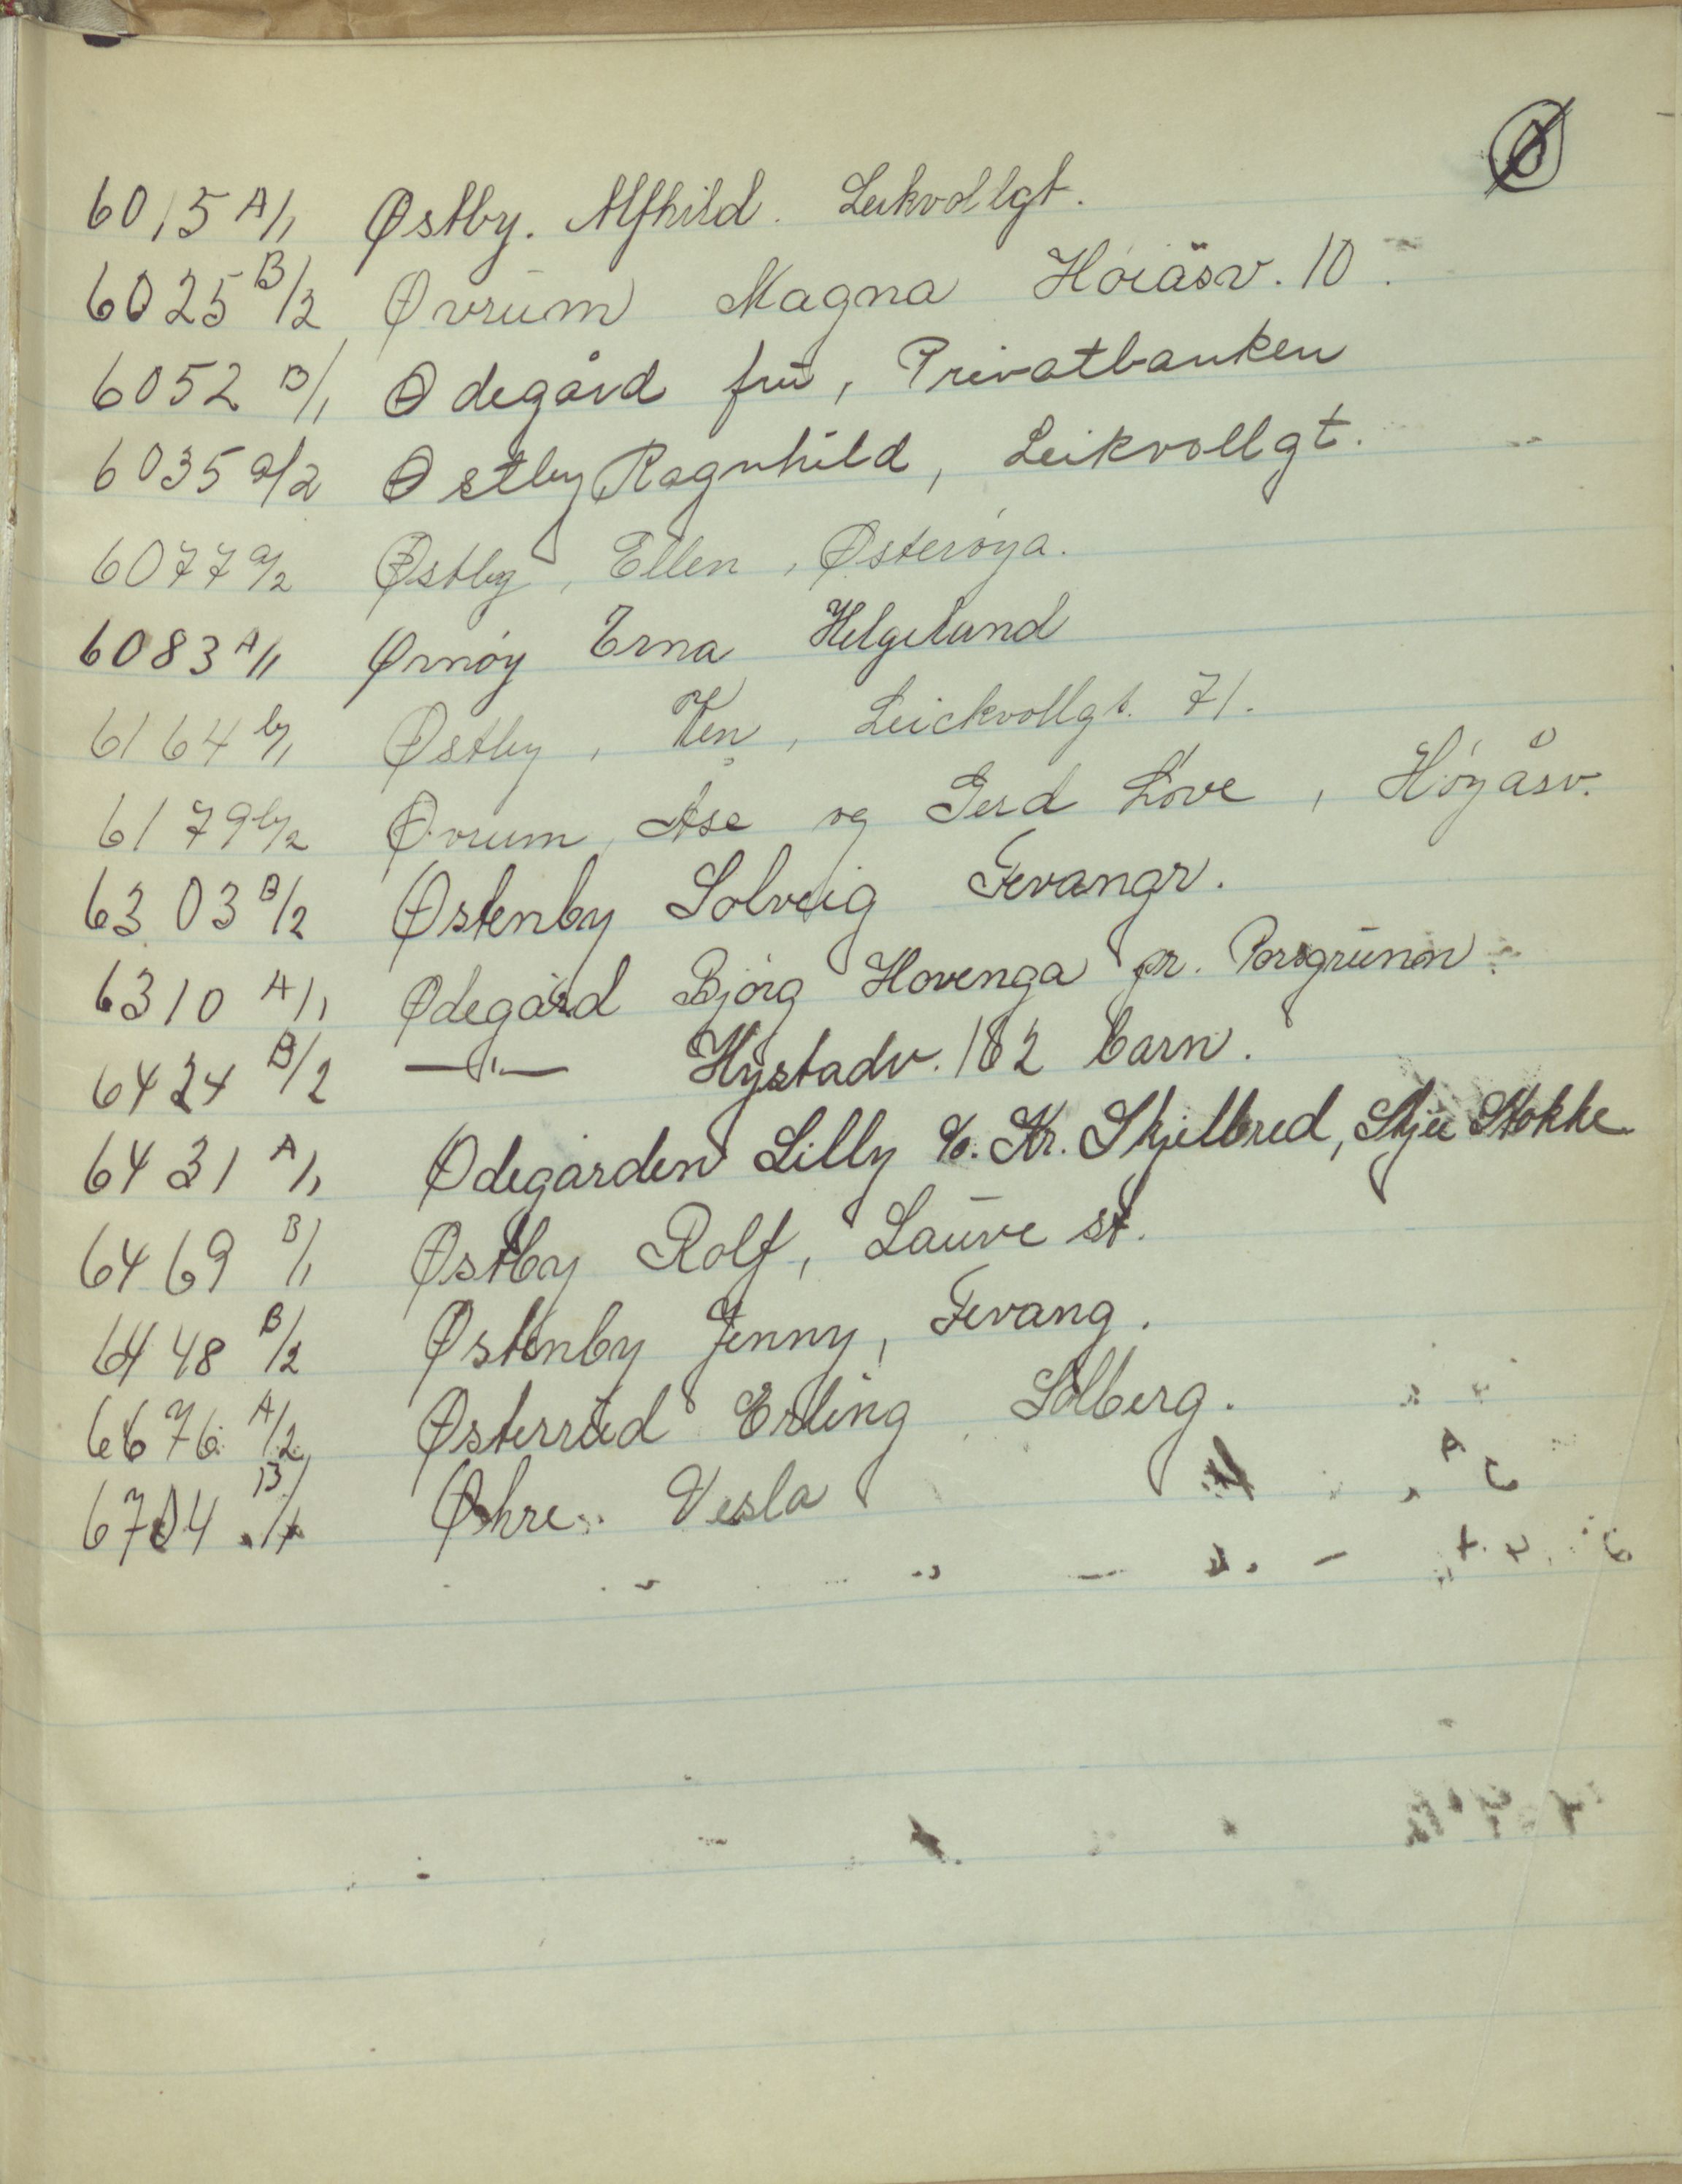 Ø
6015 A/1 Østby. Alfhild. Leikvollgt.
6025 B/2 Øvrum Magna Høiåsv. 10.
6052 B/1 Ødegård fru, Privatbanken
6035 a/2 Østby Ragnhild, Leikvollgt.
6077 a/2 Østby, Ellen, Østerøya.
6083 A/1 Ørnøy Erna Helgeland
6164 b/1 Østby, Ken, Leickvollgt. 71.
6179 b/2 Øvrum, Åse og Gerd Løve, Høyåsv.
6303 B/2 Østenby Solveig Fevangr.
6310 A/1 Ødegård Bjørg Hovenga pr. Porsgrunnn.
6424 B/2 —"— Hystadv. 182 barn.
6431 A/1 Ødegården Lilly c/o. Kr. Skjelbred, Skjee Stokke
6469 B/1 Østby Rolf, Lauve st.
6448 B/2 Østenby Jenny, Fevang.
6676 A/2 Østerrud Erling Solberg.
6704 B/1 Øhre. Vesla